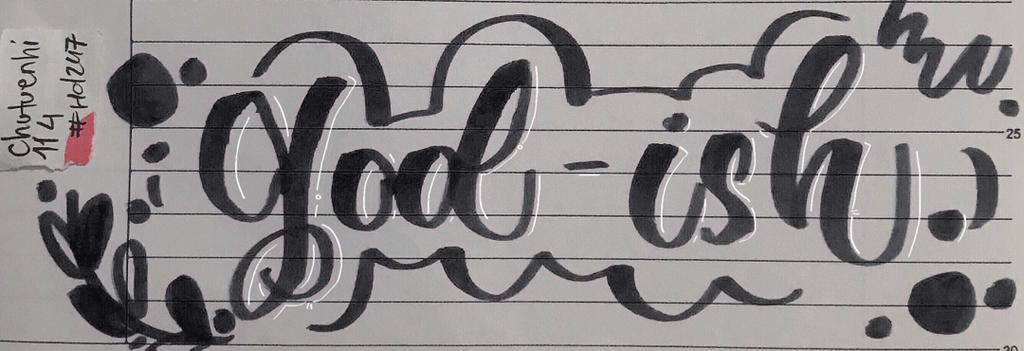 Chutuenhi
114
#Hol247
god-ish
25
20